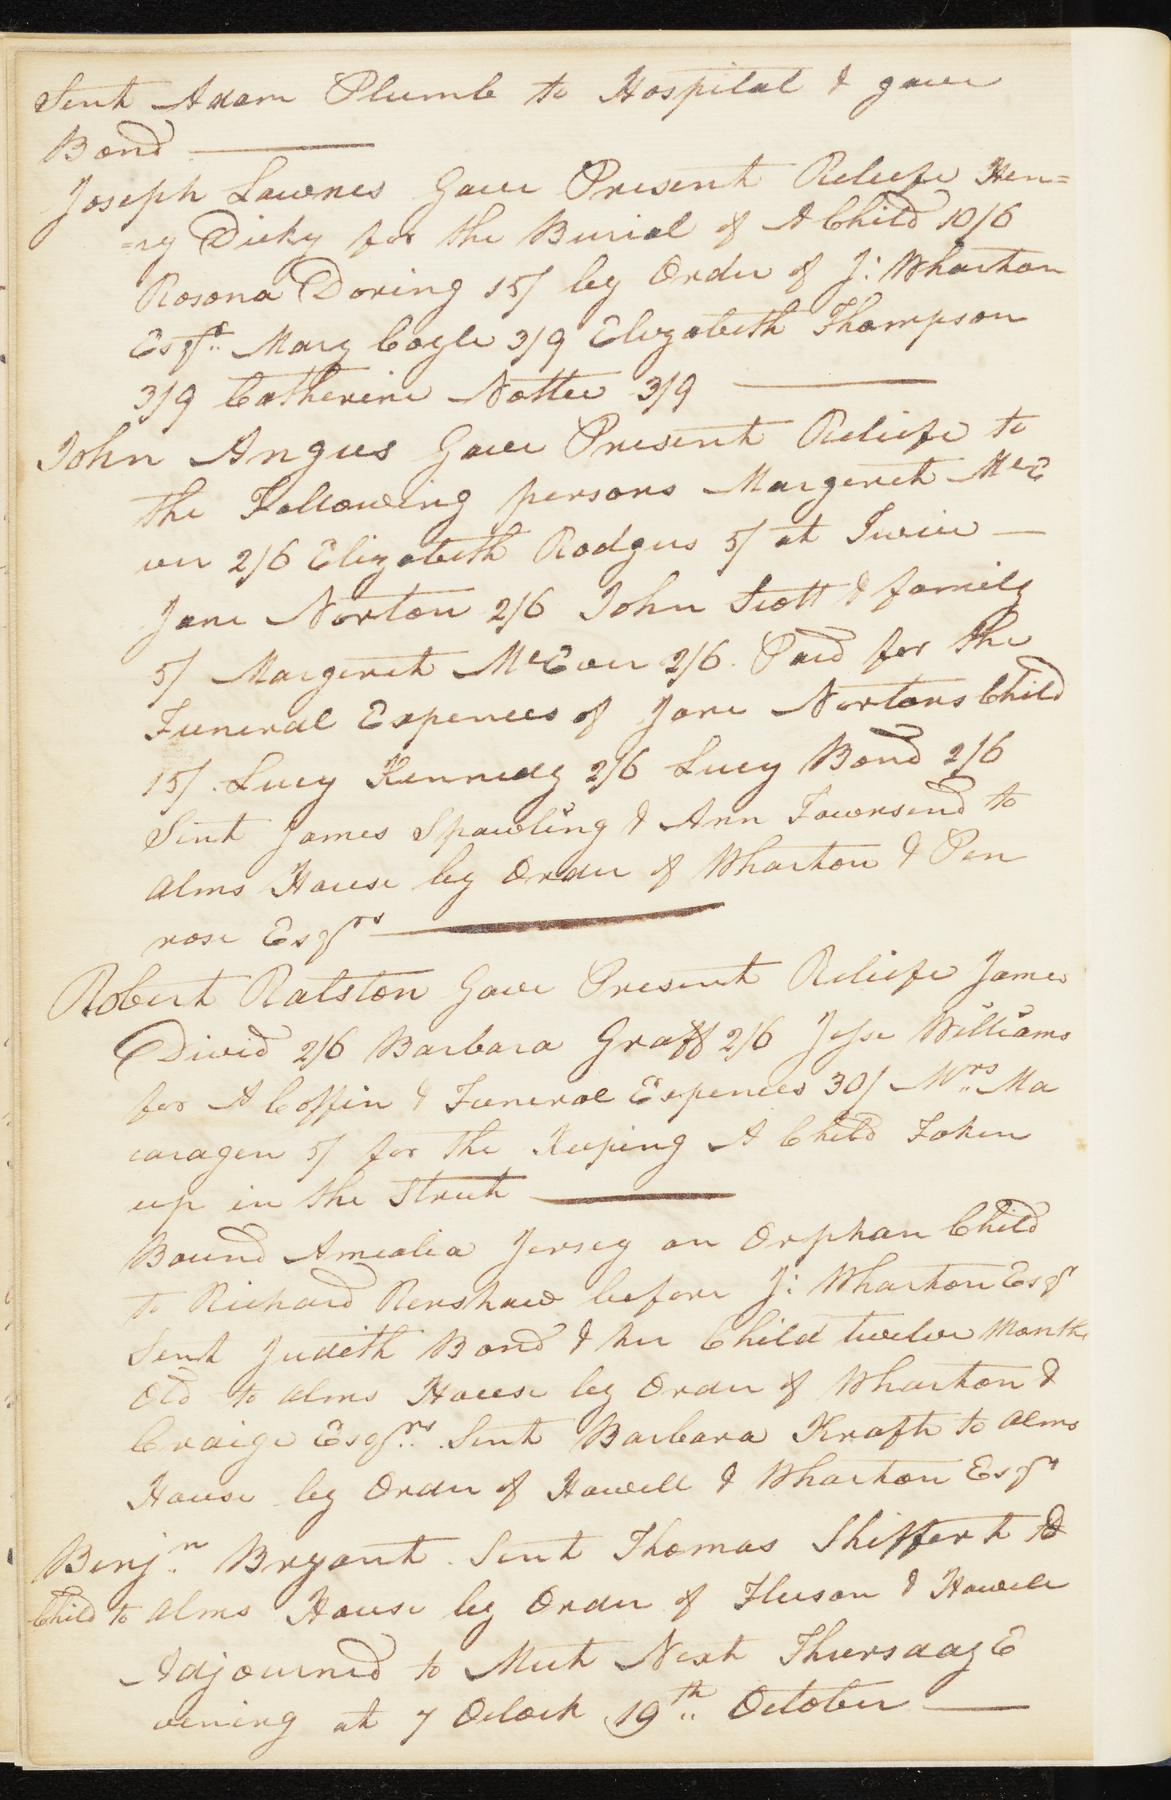 Sent Adam Plumb to Hospital & gave
Bond
Joseph Lownes Gave Present Reliefe Hen=
=ry Dicky for the Burial of A Child 10/6
Rosona Doring 15/ by Order of J: Wharton
Esqr. Mary Cogle 3/9 Elizabeth Thompson
3/9 Catherine Nottee 3/9
John Angus Gave Present Reliefe to
the Following persons Margeret McE
ven 2/6 Elizabeth Rodgers 5/ at Twice
Jane Norton 2/6 John Scott & family
5/ Margeret McEven 2/6. Paid for the
Funeral Expences of Jane Nortons Child
15/. Lucy Kennedy 2/6 Lucy Bond 2/6
Sent James Spawling & Ann Townsend to
Alms House by Order of Wharton & Pen
rose Esqrs
Robert Ralston Gave Present Reliefe James
Divid 2/6 Barbara Graff 2/6 Jesse Williams
for A Coffin & Funeral Expences 30/ Mrs. Ma
caragen 5/ for the Keeping A Child Taken
up in the Street
Bound Amealia Jersey an Orphan Child
to Richard Renshaw before J: Wharton Esqr
Sent Judeth Bond & her Child twelve Months
Old to Alms House by Order of Wharton &
Craige Esqrs. Sent Barbara Kraft to Alms
House by Order of Howell & Wharton Esqrs
Benjn. Bryant. Sent Thomas Shiffert &
Child to Alms House by Order of & Howell
Adjourned to Meet Next Thursday E
vening at 7 Oclock 19th.. October